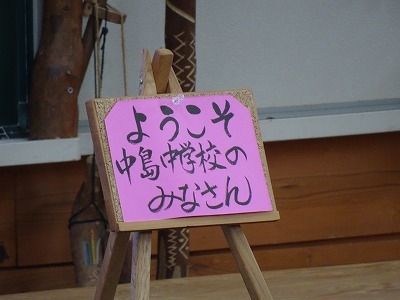 ようこそ
中島中学校の
みなさん